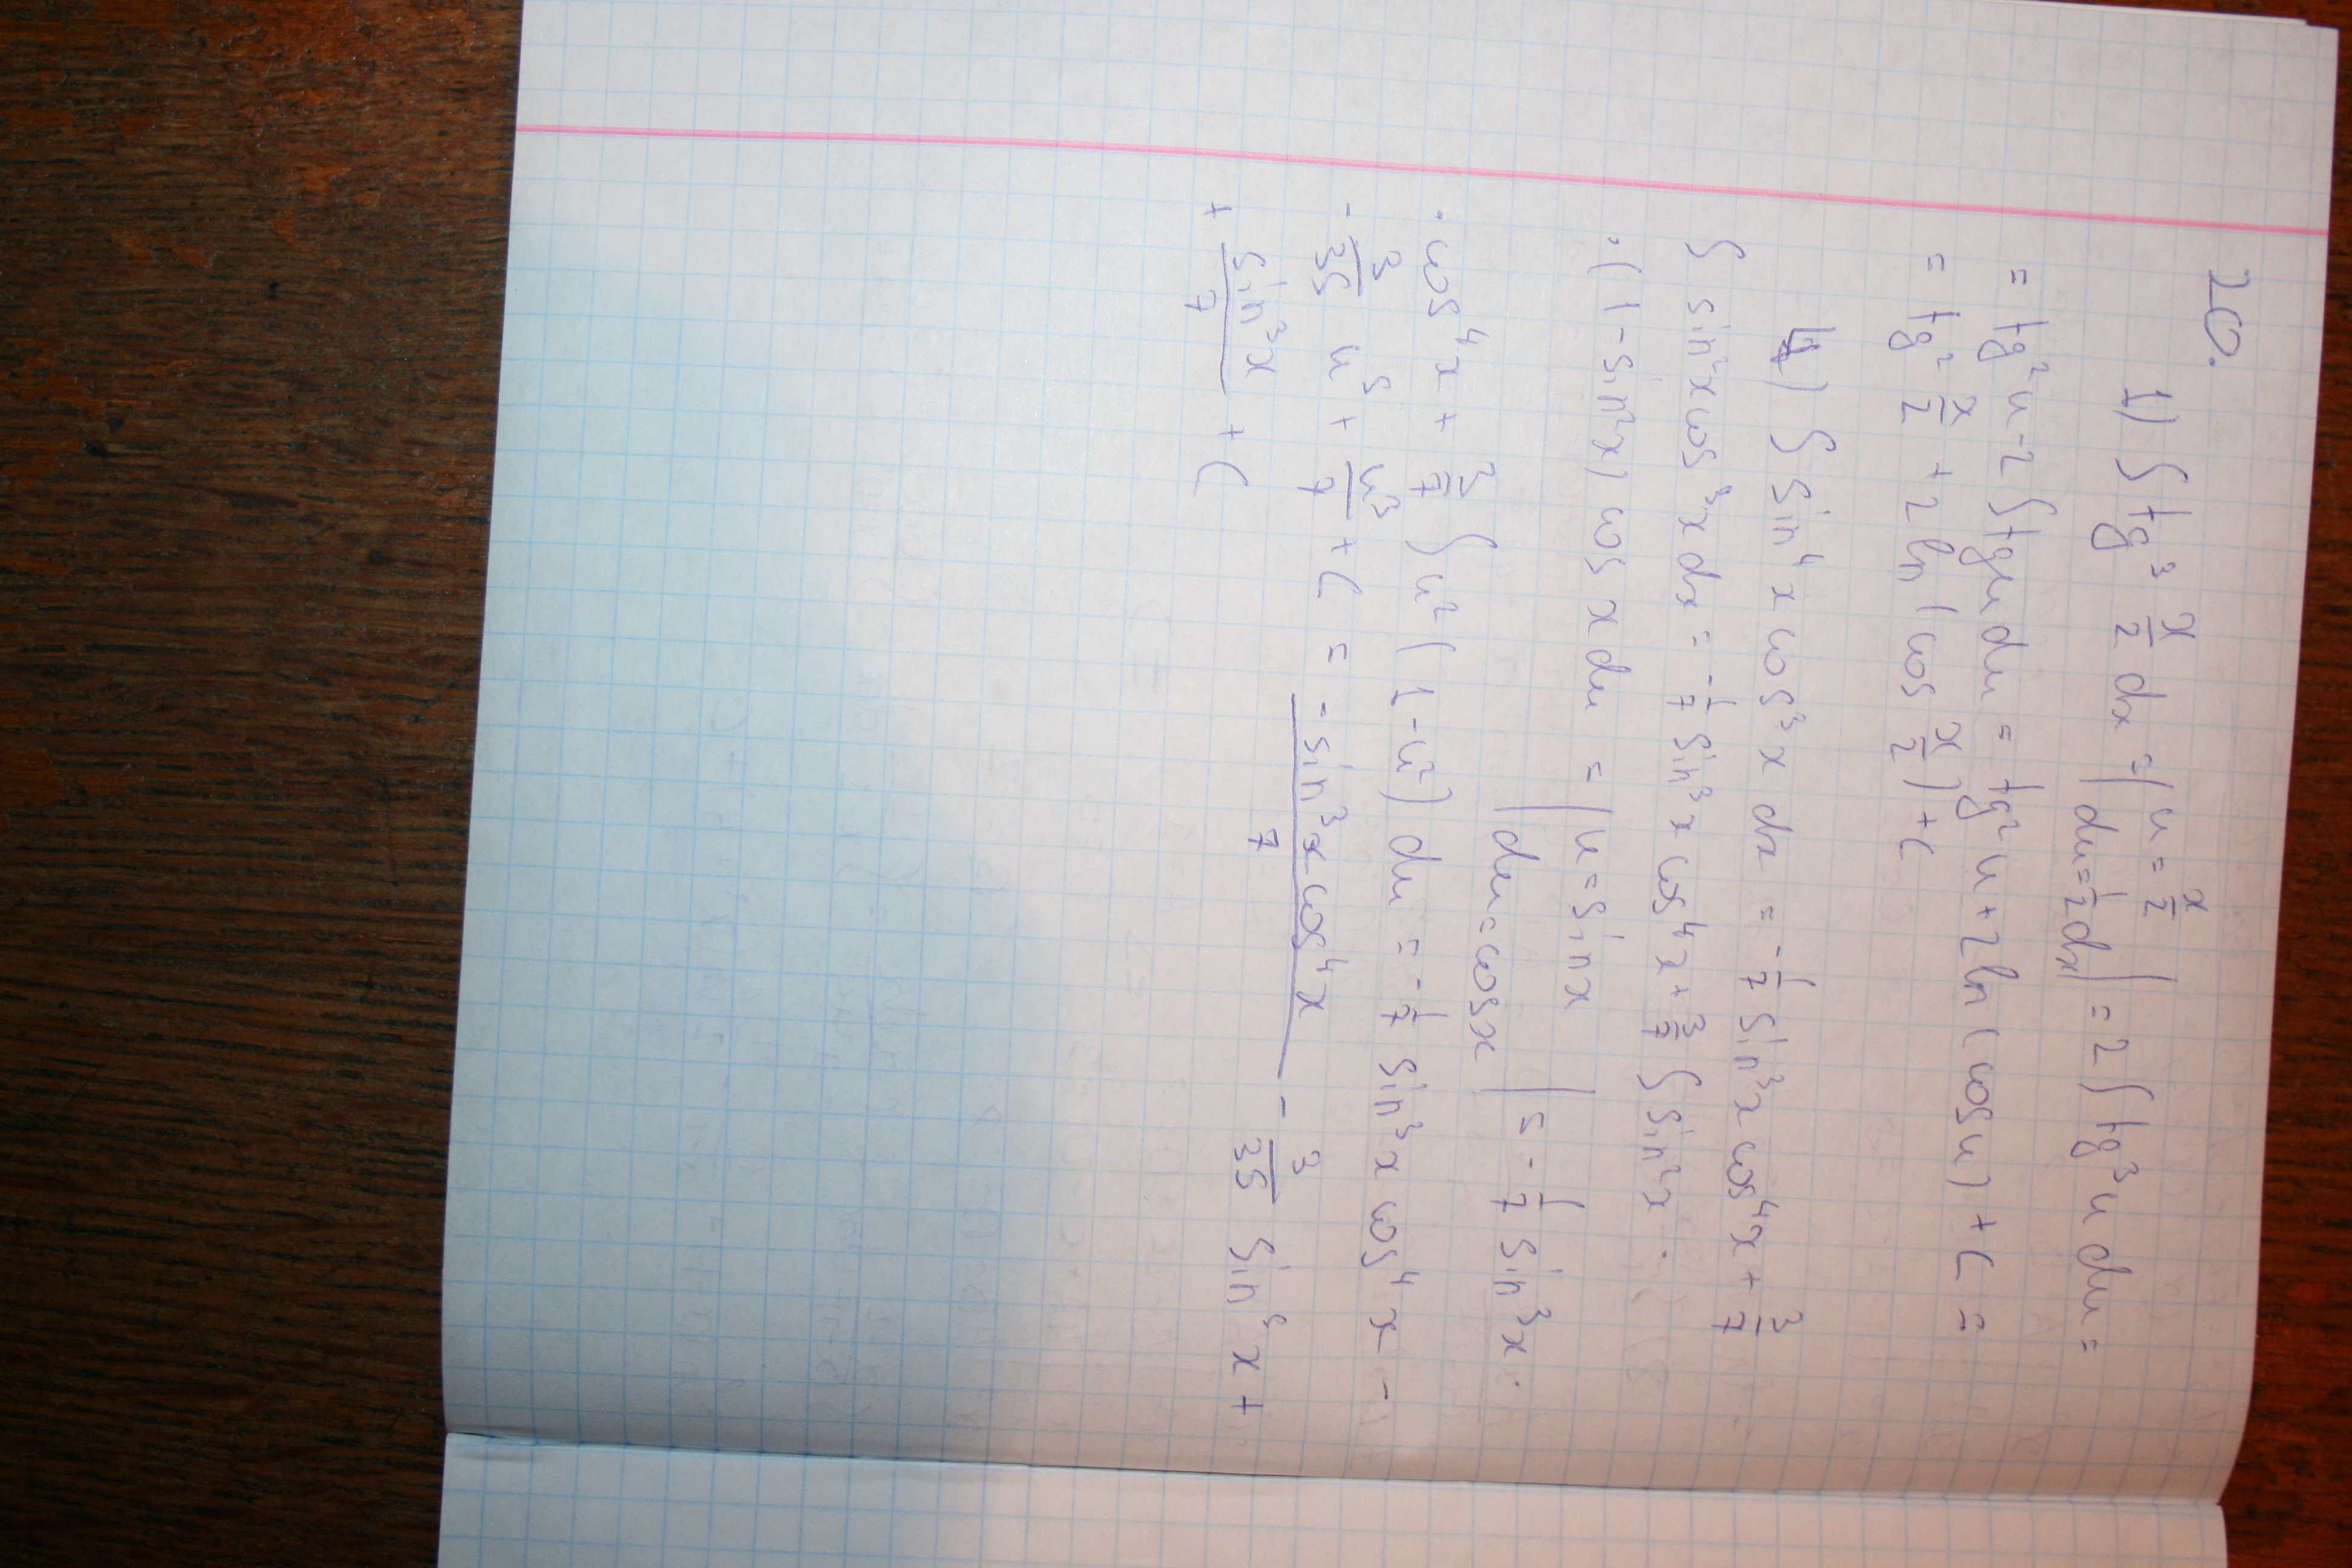 20.
1) ∫ tg³ x/2 dx = | u = x/2 du = 1/2 dx | = 2 ∫ tg³ u du =
= tg² u - 2 ∫ tg u du = tg² u + 2 ln (cos u) + C =
= tg² x/2 + 2 ln (cos x/2) + C
∫ sin⁴ x cos³ x dx = - 1/7 sin³ x cos⁴ x + 3/7
∫ sin² x cos³ x dx = - 1/7 sin³ x cos⁴ x + 3/7 ∫ sin² x ·
· (1 - sin² x) cos x du = | u = sin x du = cos x | = - 1/7 sin³ x ·
· cos⁴ x + 3/7 ∫ u² (1 - u²) du = - 1/7 sin³ x cos⁴ x -
- 3/35 u⁵ + u³/7 + C = - sin³ x cos⁴ x / 7 - 3/35 sin⁵ x +
+ sin³ x / 7 + C